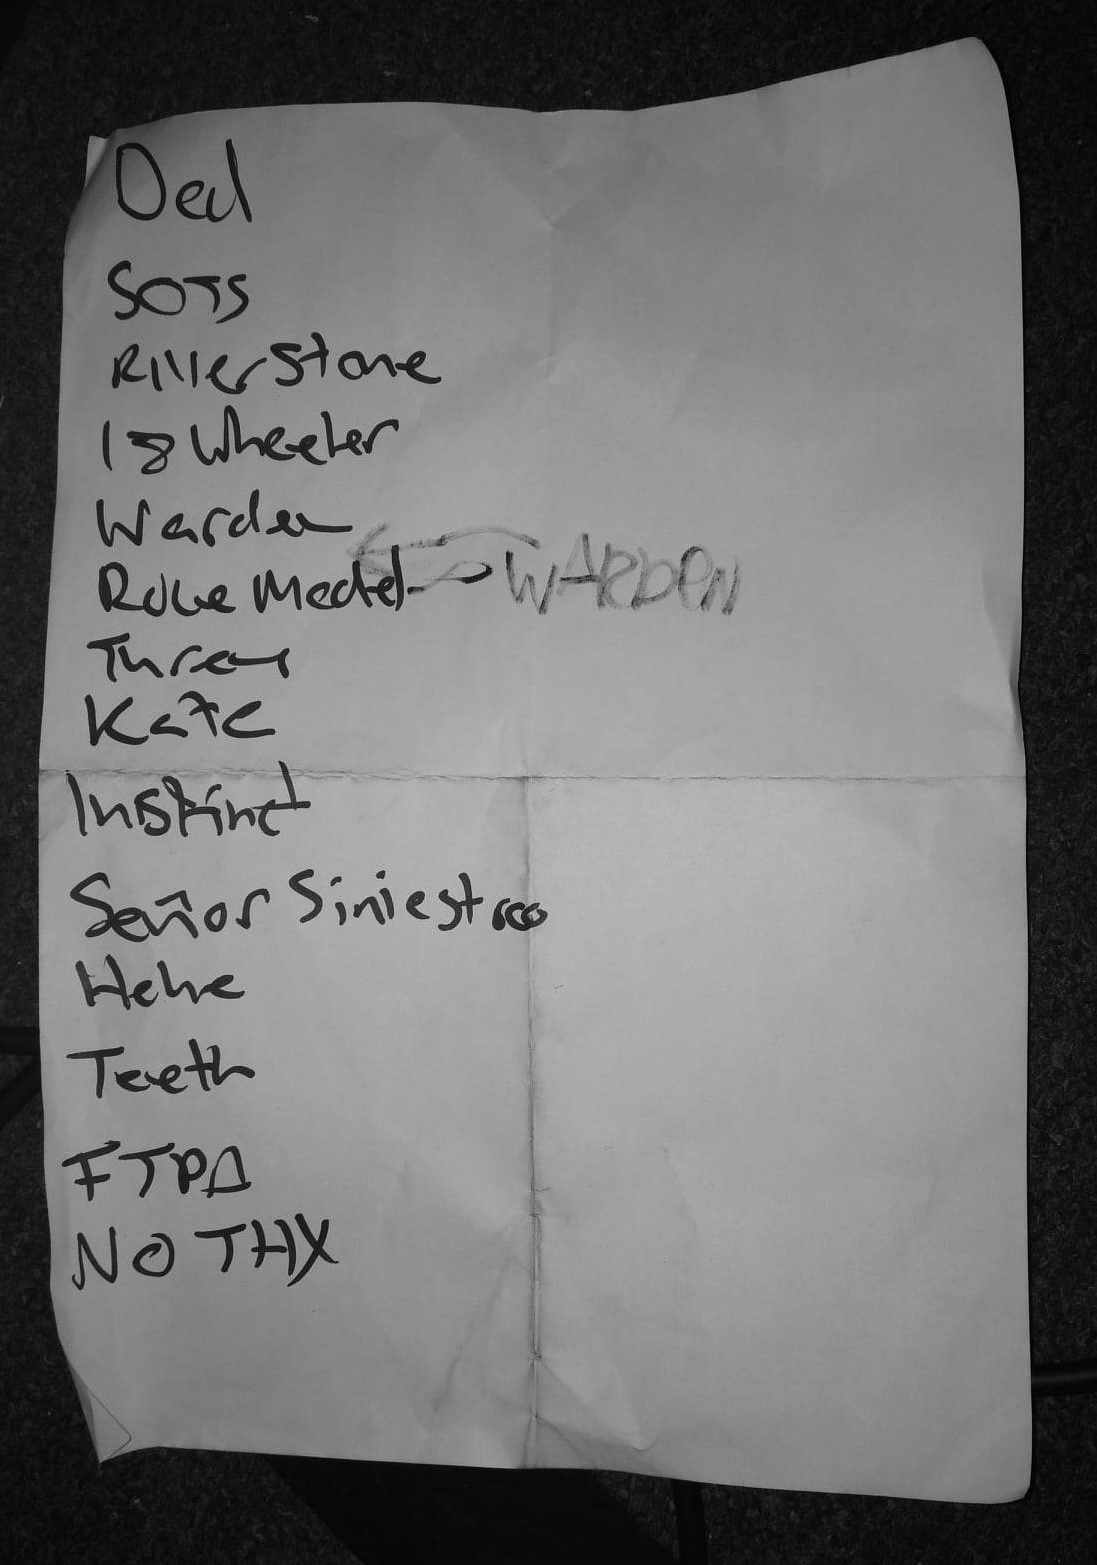 Ded
SOTS
RIVerStone
18 Wheeler
Warden
Role Model WARDEN
Threat
Kate
Instinct
Señor Siniestroo
Hehe
Teeth
FTPA
NO THX